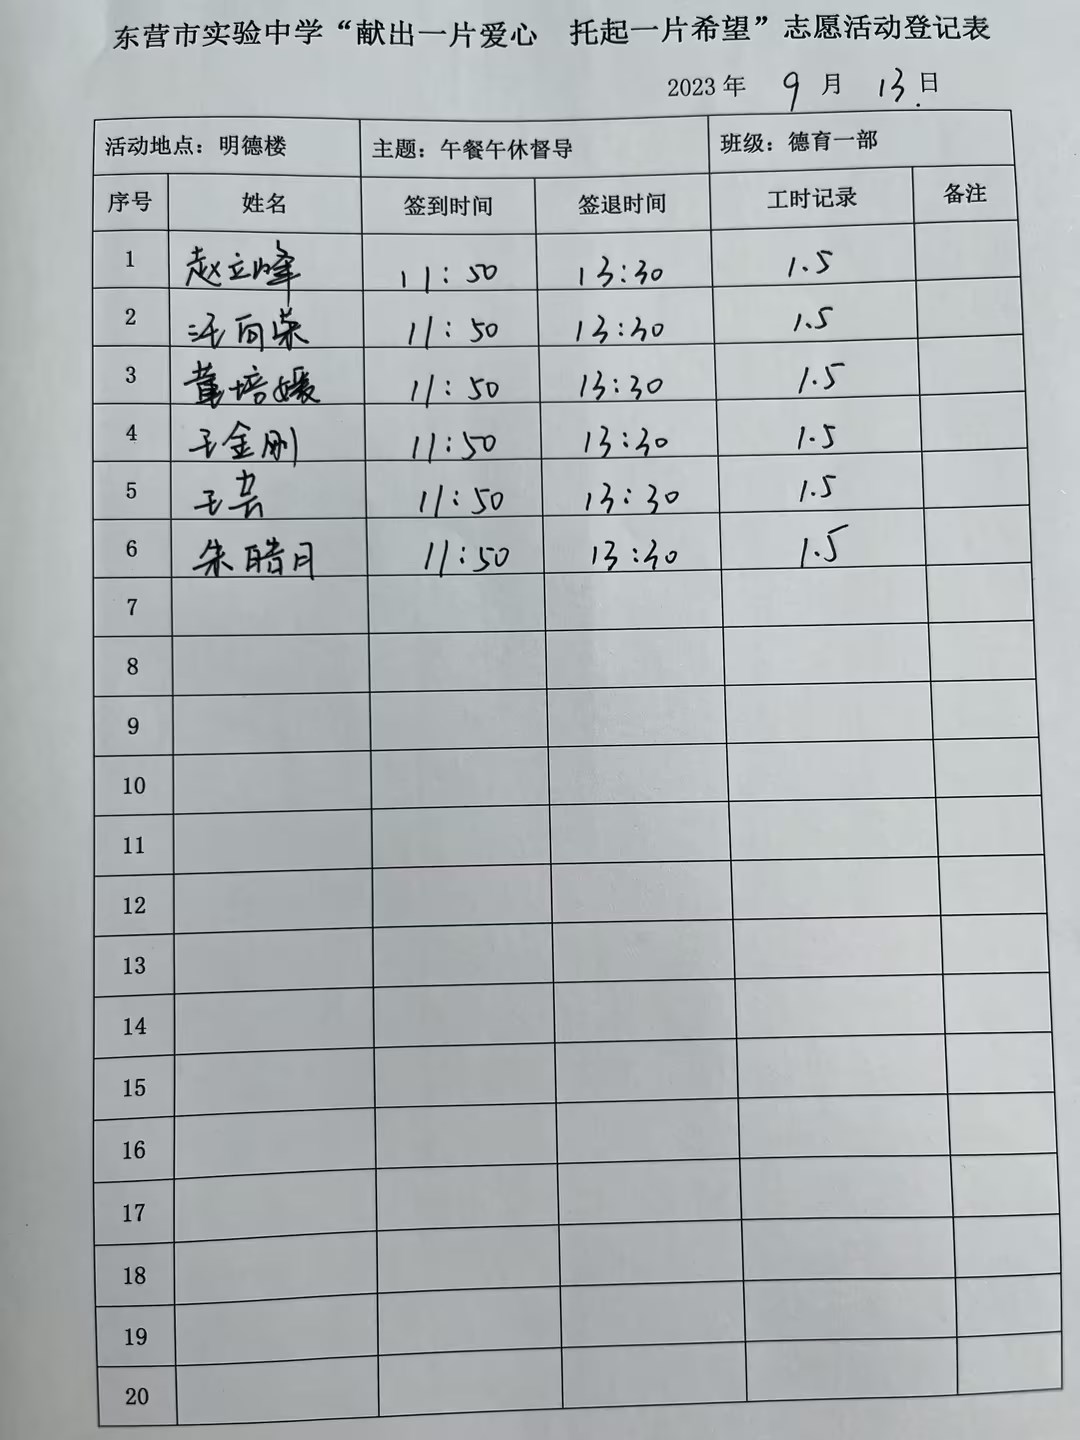 东营市实验中学“献出一片爱心 托起一片希望”志愿活动登记表
2023 年 9 月 13 日
活动地点：明德楼 主题：午餐午休督导 班级：德育一部
序号 姓名 签到时间 签退时间 工时记录 备注
1 赵立峰 11:50 13:30 1.5
2 汪向荣 11:50 13:30 1.5
3 董培媛 11:50 13:30 1.5
4 王金刚 11:50 13:30 1.5
5 王芸 11:50 13:30 1.5
6 朱皓月 11:50 13:30 1.5
7
8
9
10
11
12
13
14
15
16
17
18
19
20